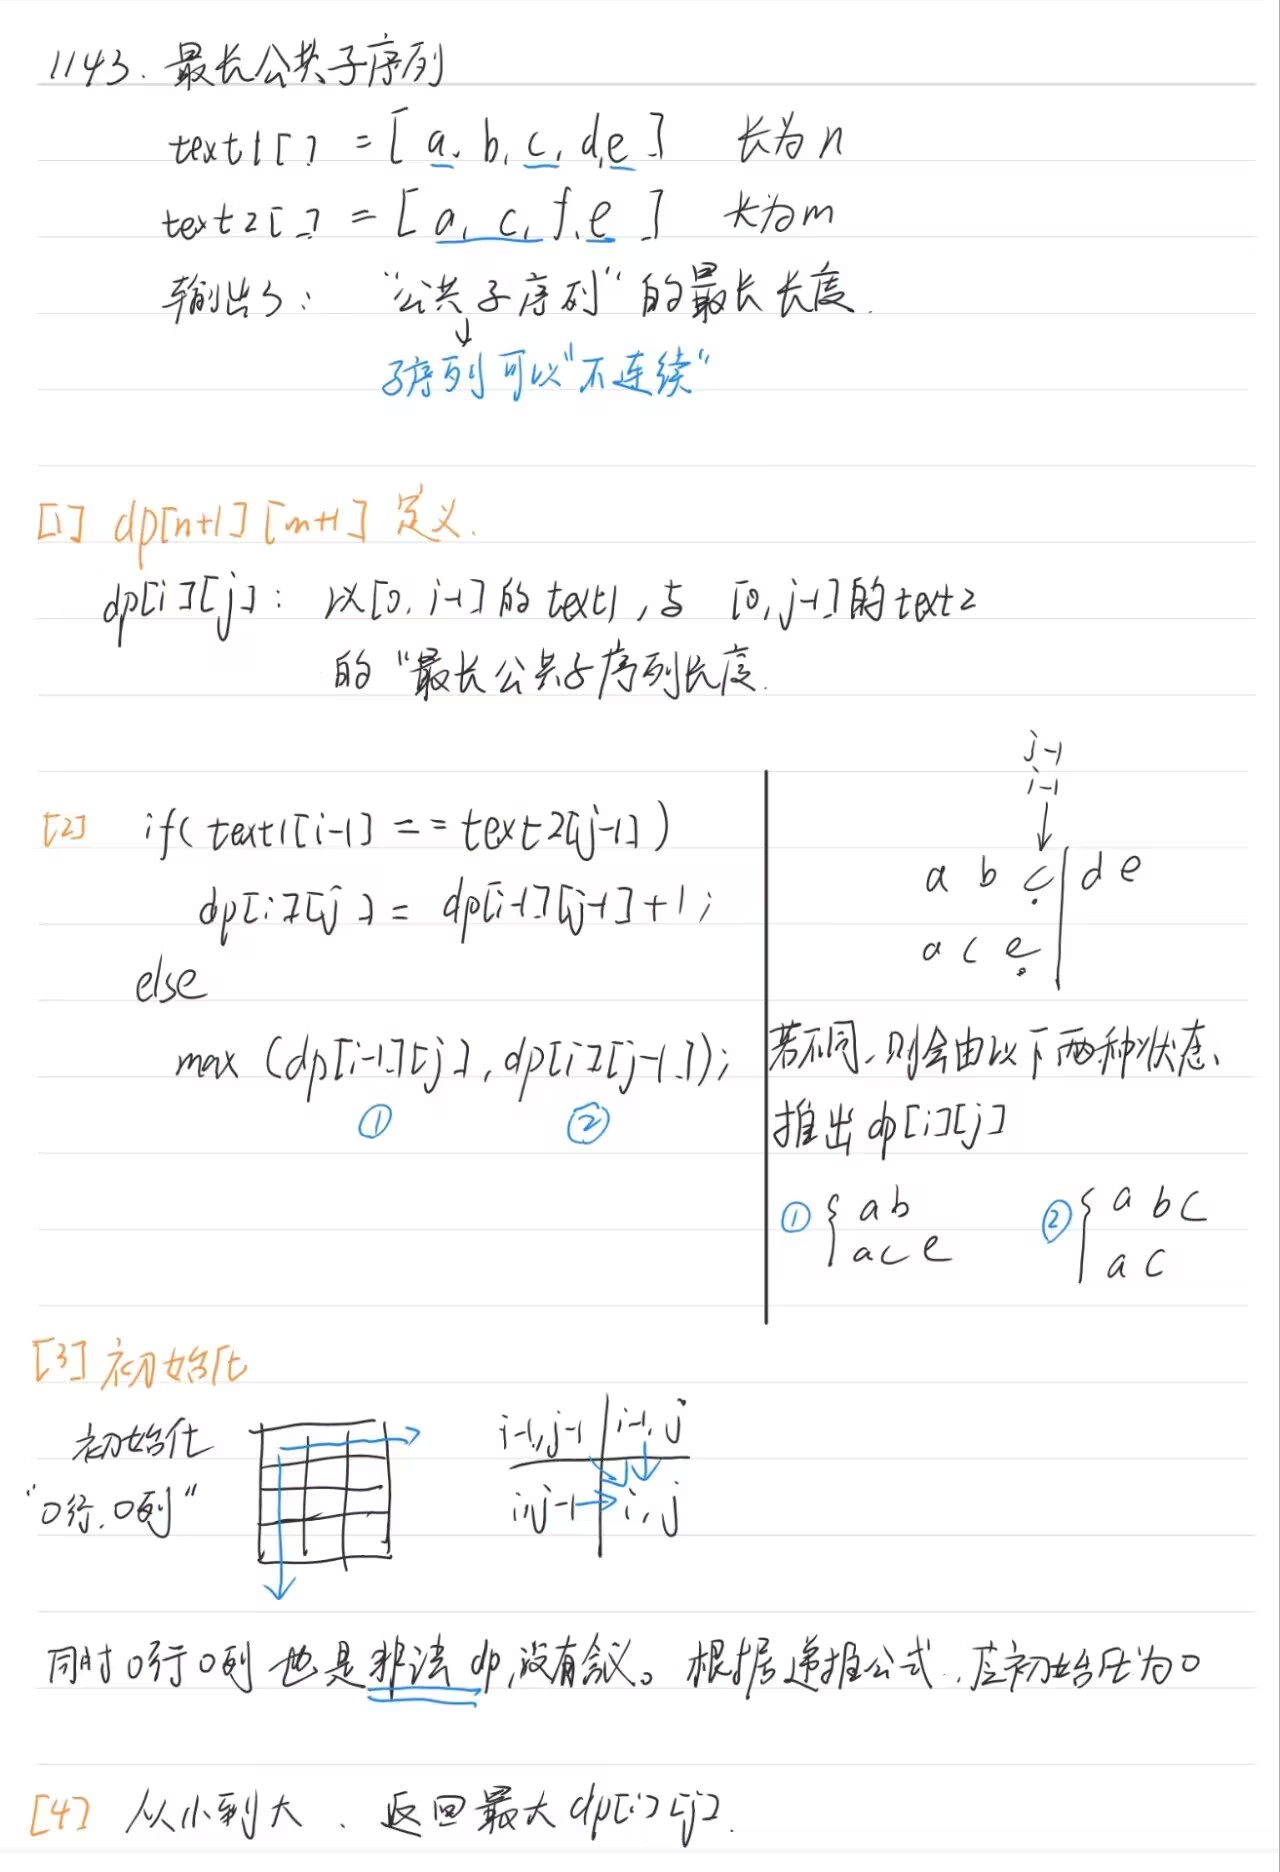 1143. 最长公共子序列
text1[] = [a, b, c, d, e] 长为n
text2[] = [a, c, f, e] 长为m
输出3： “公共子序列”的最长长度.
↓
子序列可以“不连续”
[1] dp[n+1][m+1] 定义.
dp[i][j]: 以[0, i-1]的text1, 与 [0, j-1]的text2
的“最长公共子序列长度.
[2] if( text1[i-1] == text2[j-1] )
dp[i][j] = dp[i-1][j-1]+1;
else
max (dp[i-1][j], dp[i][j-1]);
① ②
j-1
i-1
↓
a b c | d e
a c e
若不同, 则会由以下两种状态、
推出dp[i][j]
① { ab ② { a b c
ace a c
[3] 初始化
初始化
“0行, 0列”
i-1, j-1 i-1, j
i, j-1 i, j
同时0行0列 也是非法dp, 没有含义。 根据递推公式, 应初始化为0
[4] 从小到大、 返回最大dp[i][j].